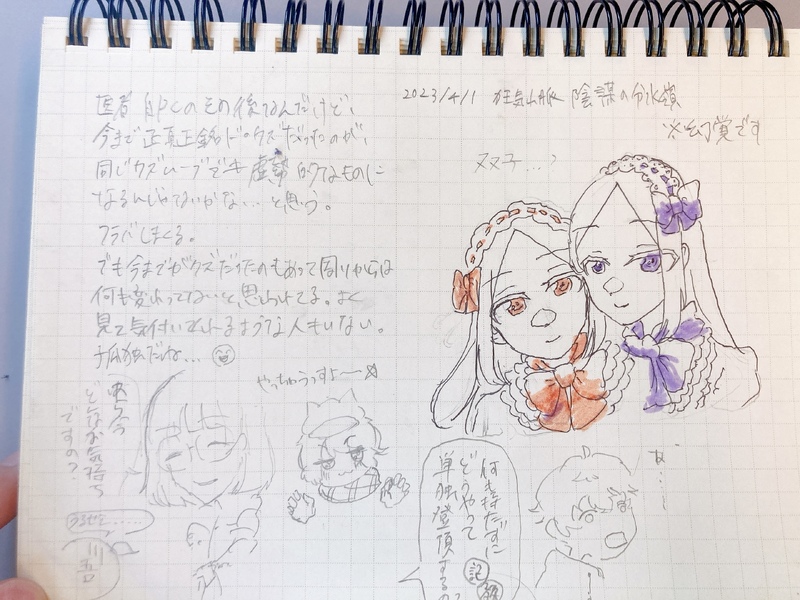 医者NPCのその後なんだけど、
今まで正真正銘ドクズだったのが、
同じクズムーブでも虚勢的なものに
なるんじゃないかな…と思う。
フラバしまくる。
でも今までがクズだったのもあって周りからは
何も変わってないと思われてる。よく
見て気付いてくれるような人もいない。
孤独だね…
やっちゃうっすよ〜
今
どんなお気持ち
ですの?
うるせぇ……
2023/4/1 狂気山脈 陰謀の分水嶺
※幻覚です
ヌヌ子…?
何も持たずに
どうやって
単独登頂するの?
あ…